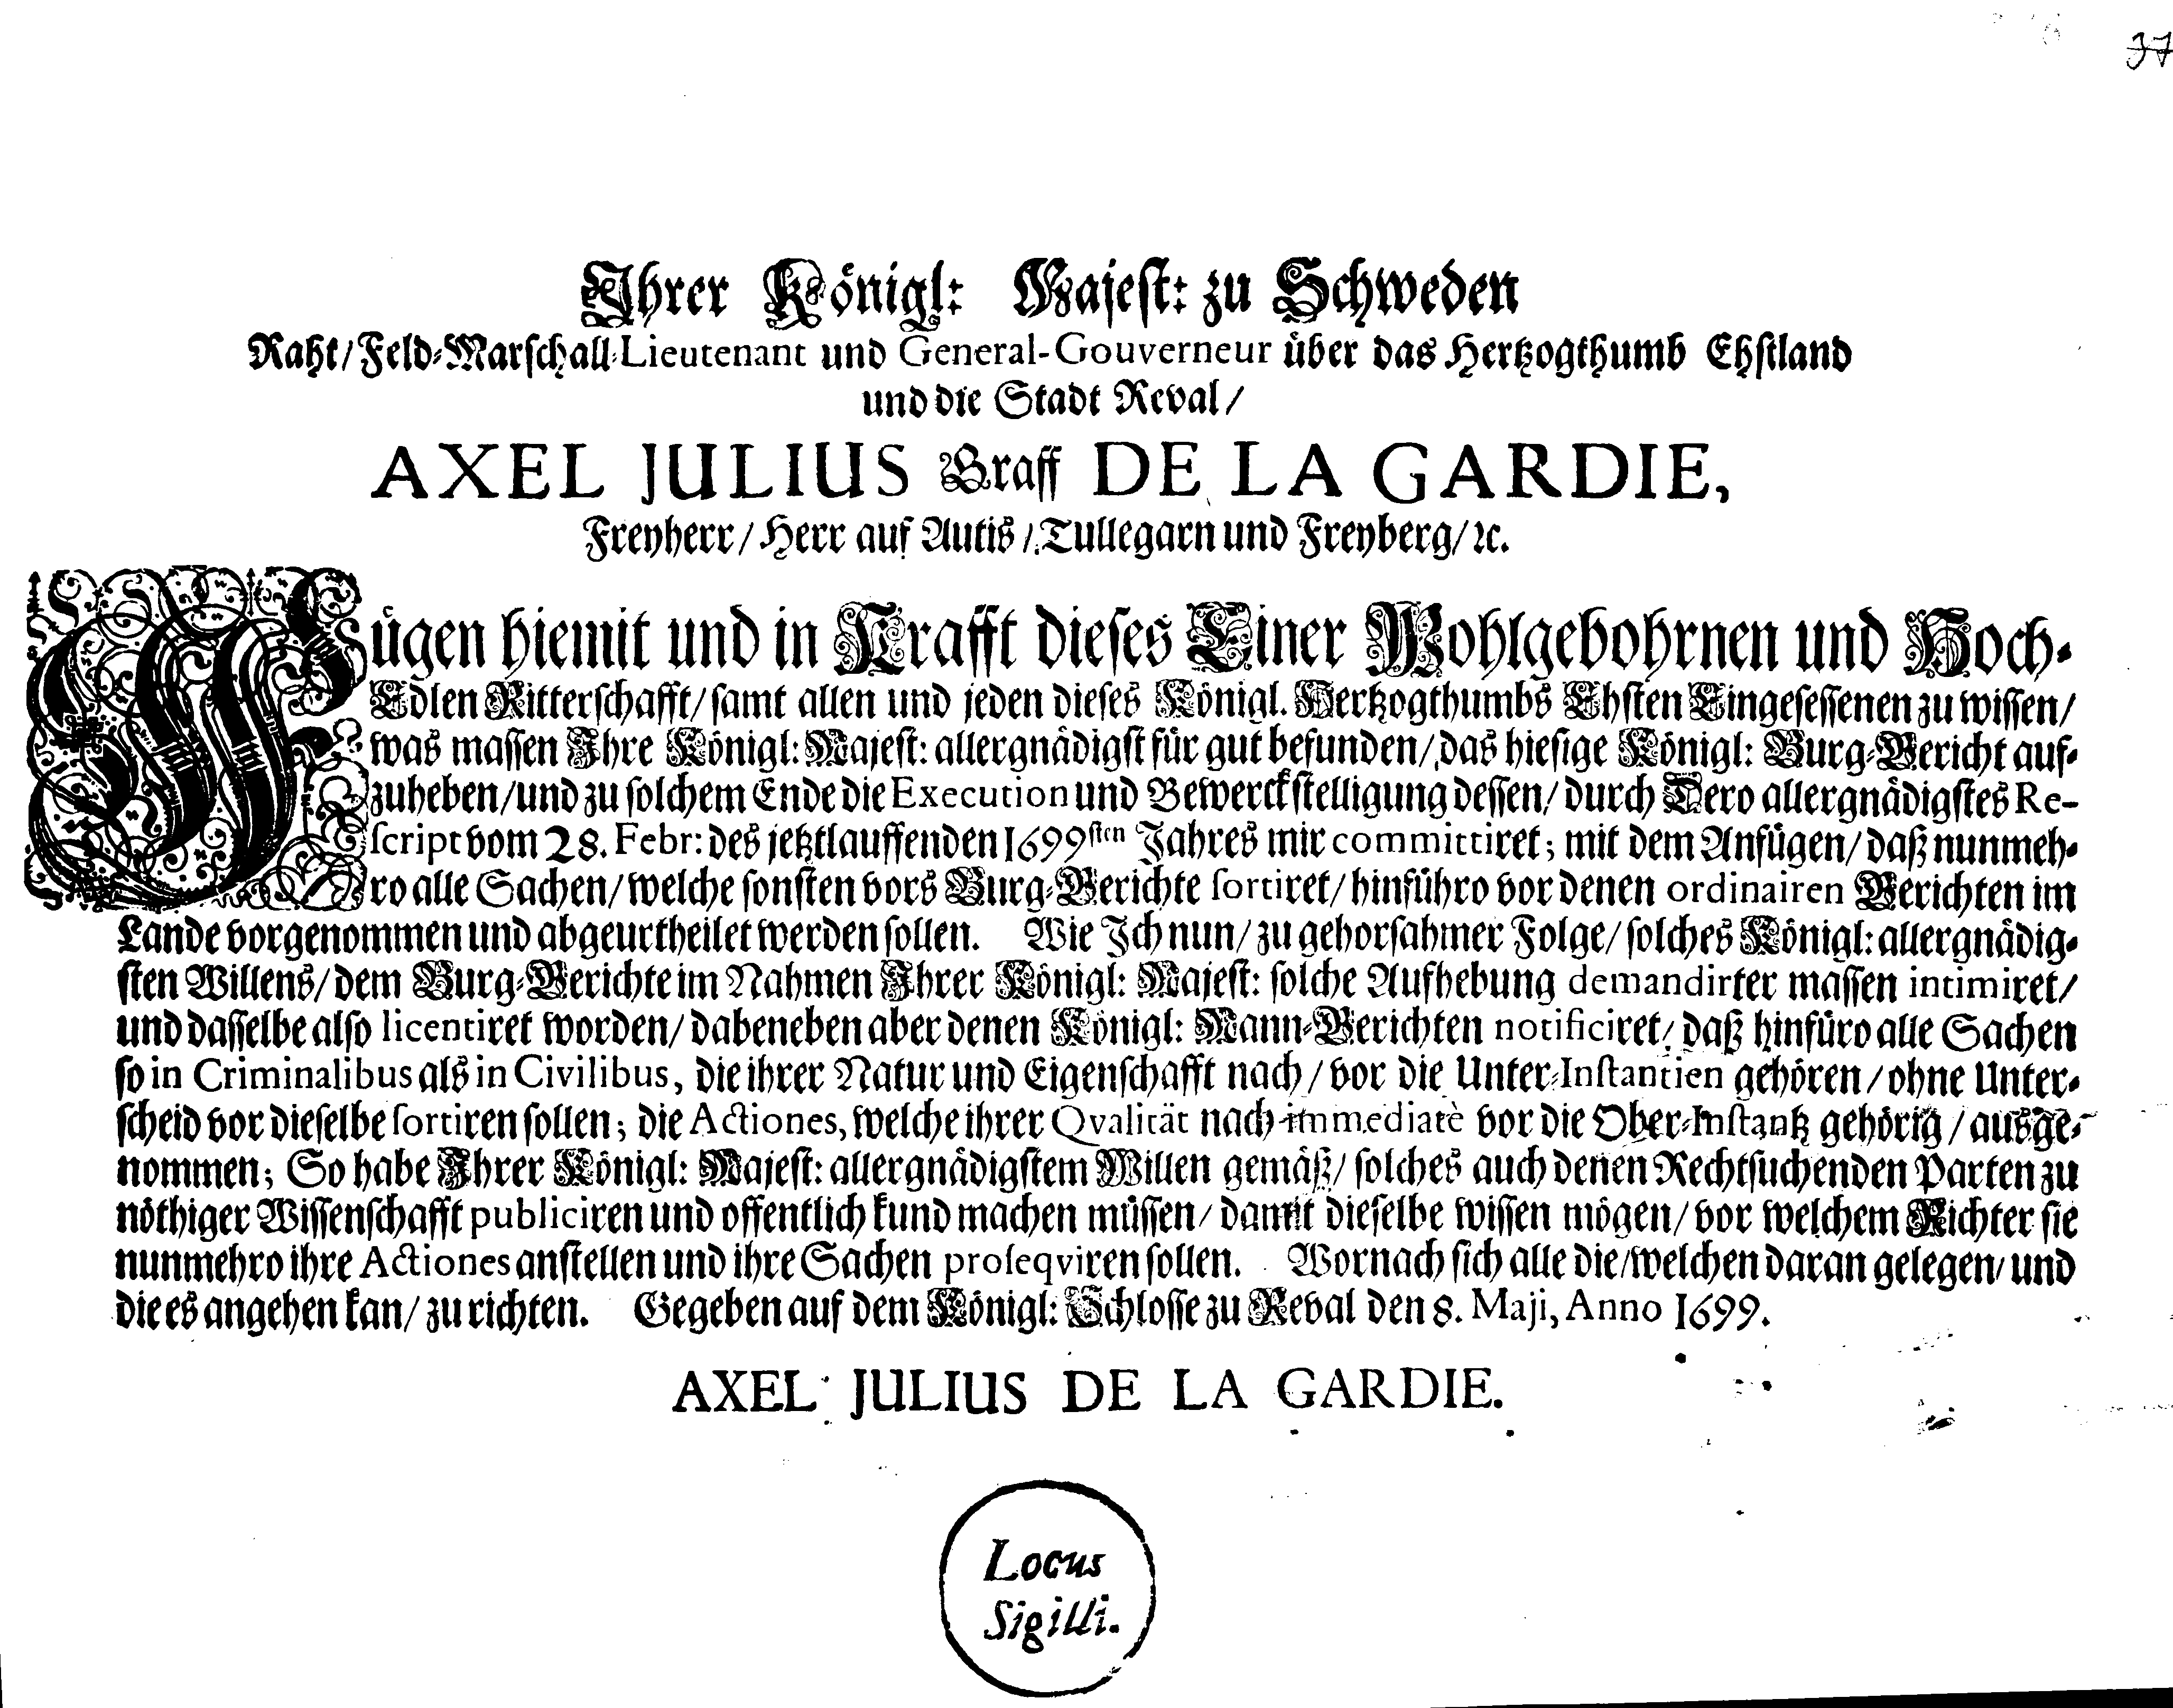 37
Ihrer Königl: Majest: zu Schweden
Raht/ Feld-Marschall-Lieutenant und General-Gouverneur über das Hertzogthumb Ehstland
und die Stadt Reval/
AXEL JULIUS Graff DE LA GARDIE,
Freyherr/ Herr auf Autis/ Tullegarn und Freyberg/ ꝛc.
Fügen hiemit und in Krafft dieses Einer Wohlgebohrnen und Hoch-
Edlen Ritterschafft/ samt allen und jeden dieses Königl. Hertzogthumbs Ehsten Eingesessenen zu wissen/
was massen Ihre Königl: Majest: allergnädigst für gut befunden/ das hiesige Königl: Burg-Gericht auf-
zuheben/ und zu solchem Ende die Execution und Bewerckstelligung dessen/ durch Dero allergnädigstes Re-
script vom 28. Febr: des jetztlauffenden 1699sten Jahres mir committiret; mit dem Anfügen/ daß nunmeh-
ro alle Sachen/ welche sonsten vors Burg-Gerichte sortiret/ hinführo vor denen ordinairen Gerichten im
Lande vorgenommen und abgeurtheilet werden sollen. Wie Ich nun/ zu gehorsahmer Folge/ solches Königl: allergnädig-
sten Willens/ dem Burg-Gerichte im Nahmen Ihrer Königl: Majest: solche Aufhebung demandirter massen intimiret/
und dasselbe also licentiret worden/ dabeneben aber denen Königl: Mann-Gerichten notificiret/ daß hinfüro alle Sachen
so in Criminalibus als in Civilibus, die ihrer Natur und Eigenschafft nach/ vor die Unter-Instantien gehören/ ohne Unter-
scheid vor dieselbe sortiren sollen; die Actiones, welche ihrer Qvalität nach immediatè vor die Ober-Instantz gehörig/ ausge-
nommen; So habe Ihrer Königl: Majest: allergnädigstem Willen gemäß/ solches auch denen Rechtsuchenden Parten zu
nöthiger Wissenschafft publiciren und offentlich kund machen müssen/ damit dieselbe wissen mögen/ vor welchem Richter sie
nunmehro ihre Actiones anstellen und ihre Sachen proseqviren sollen. Wornach sich alle die/ welchen daran gelegen/ und
die es angehen kan/ zu richten. Gegeben auf dem Königl: Schlosse zu Reval den 8. Maji, Anno 1699.
AXEL JULIUS DE LA GARDIE.
Locus
Sigilli.